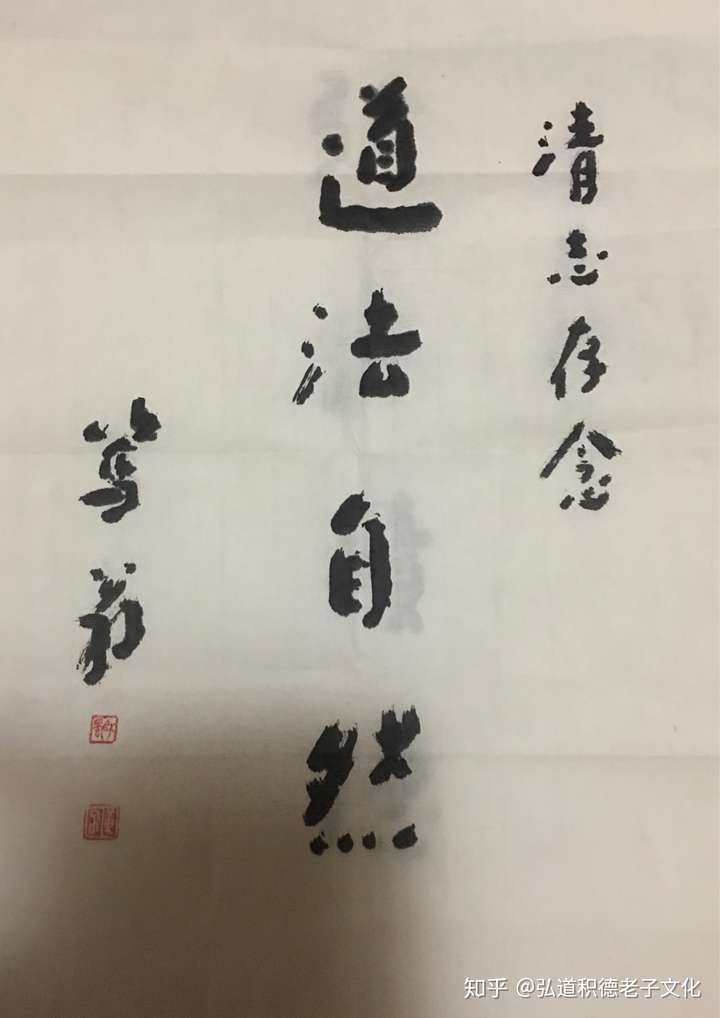 清志存念
道法自然
笃翁
知乎 @弘道积德老子文化